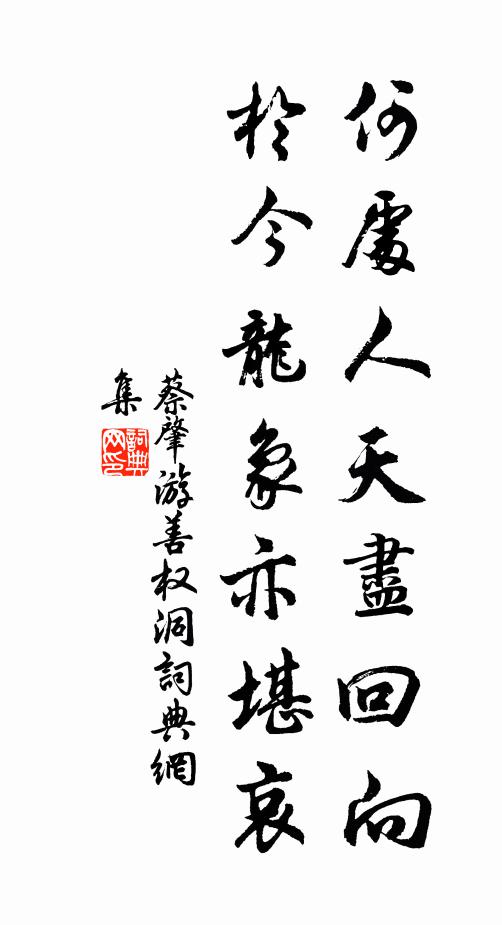 何處人天盡回向
於今龍象亦堪哀
蔡肇游善权洞詞典網
集
詞典
网印